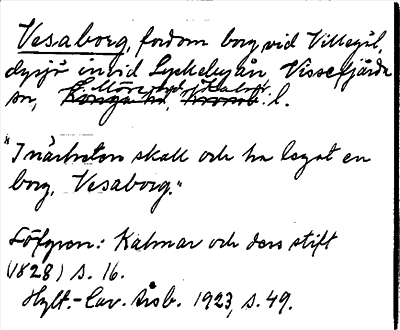 Vesaborg, fordom borg vid Villegöl,
dysjö invid Lyckebyån Vissefjärda
S. Möre hd, Kalm.
sn, Konga hd, Kronob. l.
"I närheten skall och ha legat en
borg, Vesaborg."
Löfgren: Kalmar och dess stift
(1828) s. 16.
Hylt.-Cav. Årsb. 1923, s. 49.